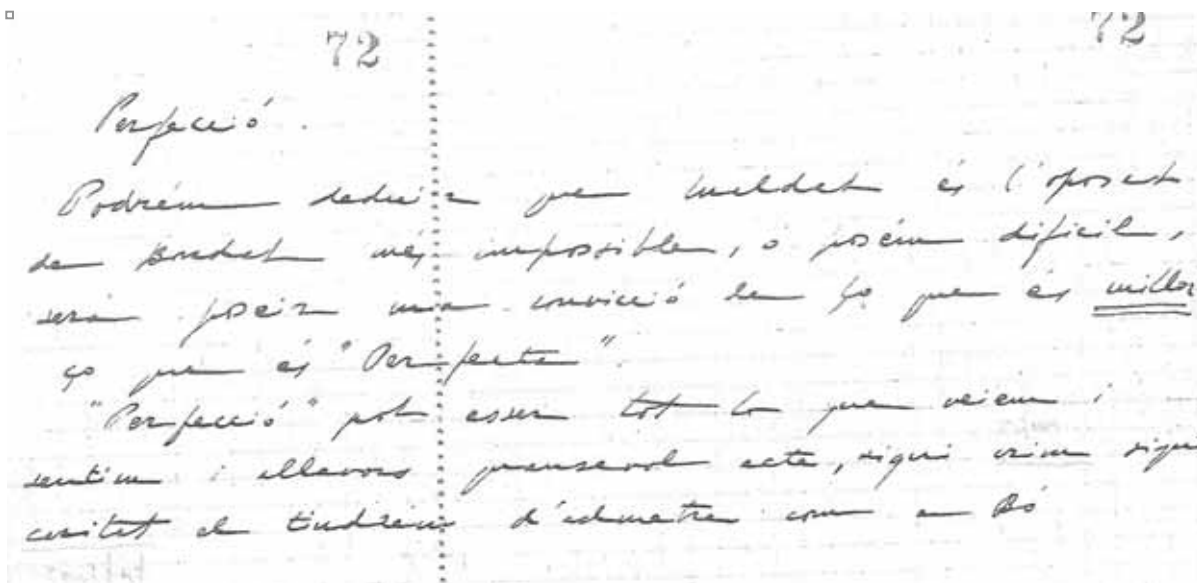 72 72
Perfecció.
Podrém deduir que Maldat és l'oposat
de Bondat més impossible, o posém difícil,
será poseir una convicció de ço que és millor
ço que és "Perfecte".
"Perfecció" pot esser tot lo que veiem i
sentim i allavors quansevol acte, sigui crim sigui
caritat el tindrém d'admetre com a Bó